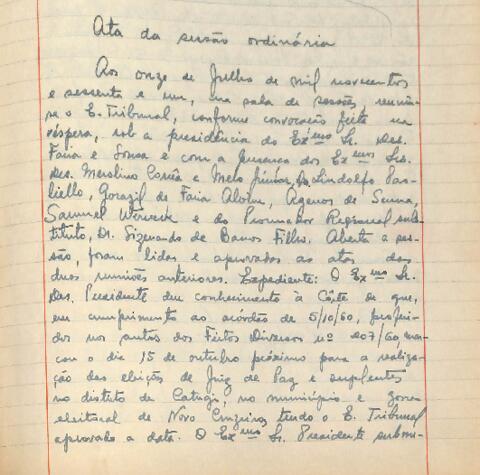 Ata da sessão ordinária
Aos onze de Julho de mil novecentos
e sessenta e um, na sala de sessões, reuniu-
se o E. Tribunal, conforme convocação feita na
véspera, sob a presidência do Exmo Sr. Des.
Faria e Sousa e com a presença dos Exmos Srs.
Des. Merolino Corrêa e Melo Júnior, Drs. Lindolfo Pao-
liello, Gorazil de Faria Alvim, Agenor de Senna,
Samuel Werneck e do Procurador Regional subs-
tituto, Dr. Sizenando de Barros Filho. Aberta a ses-
são, foram lidas e aprovadas as atas das
duas reuniões anteriores. Expediente: O Exmo Sr.
Des. Presidente deu conhecimento à Côrte de que,
em cumprimento ao acórdão de 5/10/60, proferi-
do nos autos dos Feitos Diversos nº 207/60, mar-
cou o dia 15 de outubro próximo para a realiza-
ção das eleições de Juiz de Paz e suplentes
no distrito de Catugi, no município e zona
eleitoral de Novo Cruzeiro, tendo o E. Tribunal
aprovado a data. O Exmo Sr. Presidente subme-